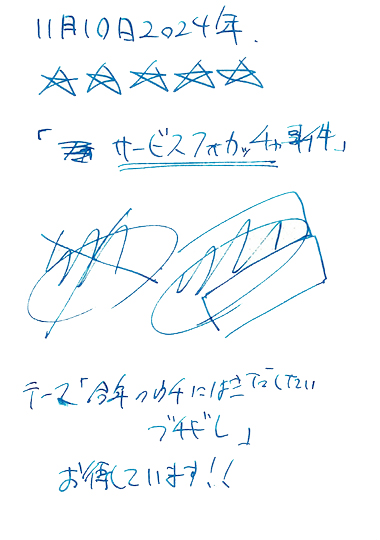 11月10日2024年.
☆☆☆☆☆
「サービスフォカッチャ事件」
テーマ「今年のウチにはき出したい
グチだし」
お待しています!!